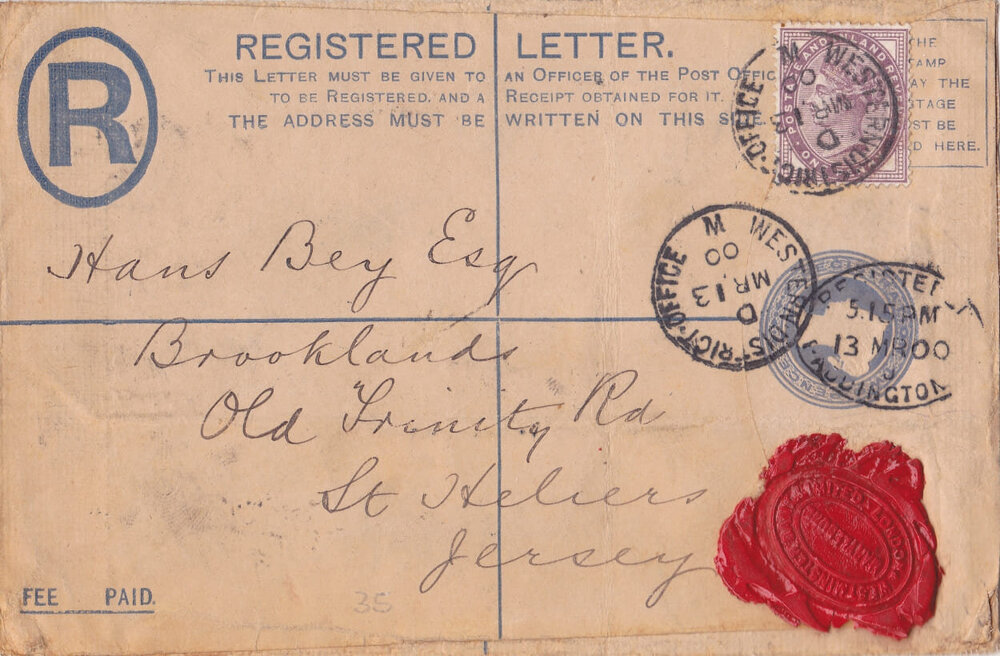 R
REGISTERED LETTER.
THIS LETTER MUST BE GIVEN TO AN OFFICER OF THE POST OFFIC
TO BE REGISTERED, AND A RECEIPT OBTAINED FOR IT.
THE ADDRESS MUST BE WRITTEN ON THIS SIDE.
THE
STAMP
AY THE
STAGE
ST BE
D HERE.
POSTAGE AND INLAND REVENUE
ON
WESTERN DISTRICT OFFICE
M
00
MR 13
D
WESTERN DISTRICT OFFICE
M
00
MR 13
D
REGISTE
5.15PM
13 MR 00
PADDINGTON
PENCE
Hans Bey Esq
Brooklands
Old Trinity Rd
St Heliers
Jersey
LIMITED. LONDON
WESTMINSTER
FEE PAID.
35